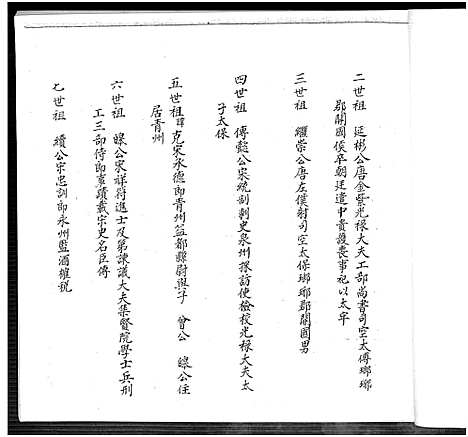 二世祖 延彬公唐金紫光祿大夫工部尚書司空太傅瑯琊
郡開國侯卒朝廷遣中貴護喪事祀以太牢
三世祖 繼崇公唐左僕射司空太保瑯琊郡開國男
四世祖 傳懿公宋統剌刺史泉州探訪使檢校光祿大夫太
子太保
五世祖諱克宋承德郎青州益都縣尉與子 曾公 皞公住
居青州
六世祖 皞公宋祥符進士及第諫議大夫集賢院學士兵刑
工三部侍郎事蹟載宋史名臣傳
七世祖 續公宋忠訓郎永州監酒權稅